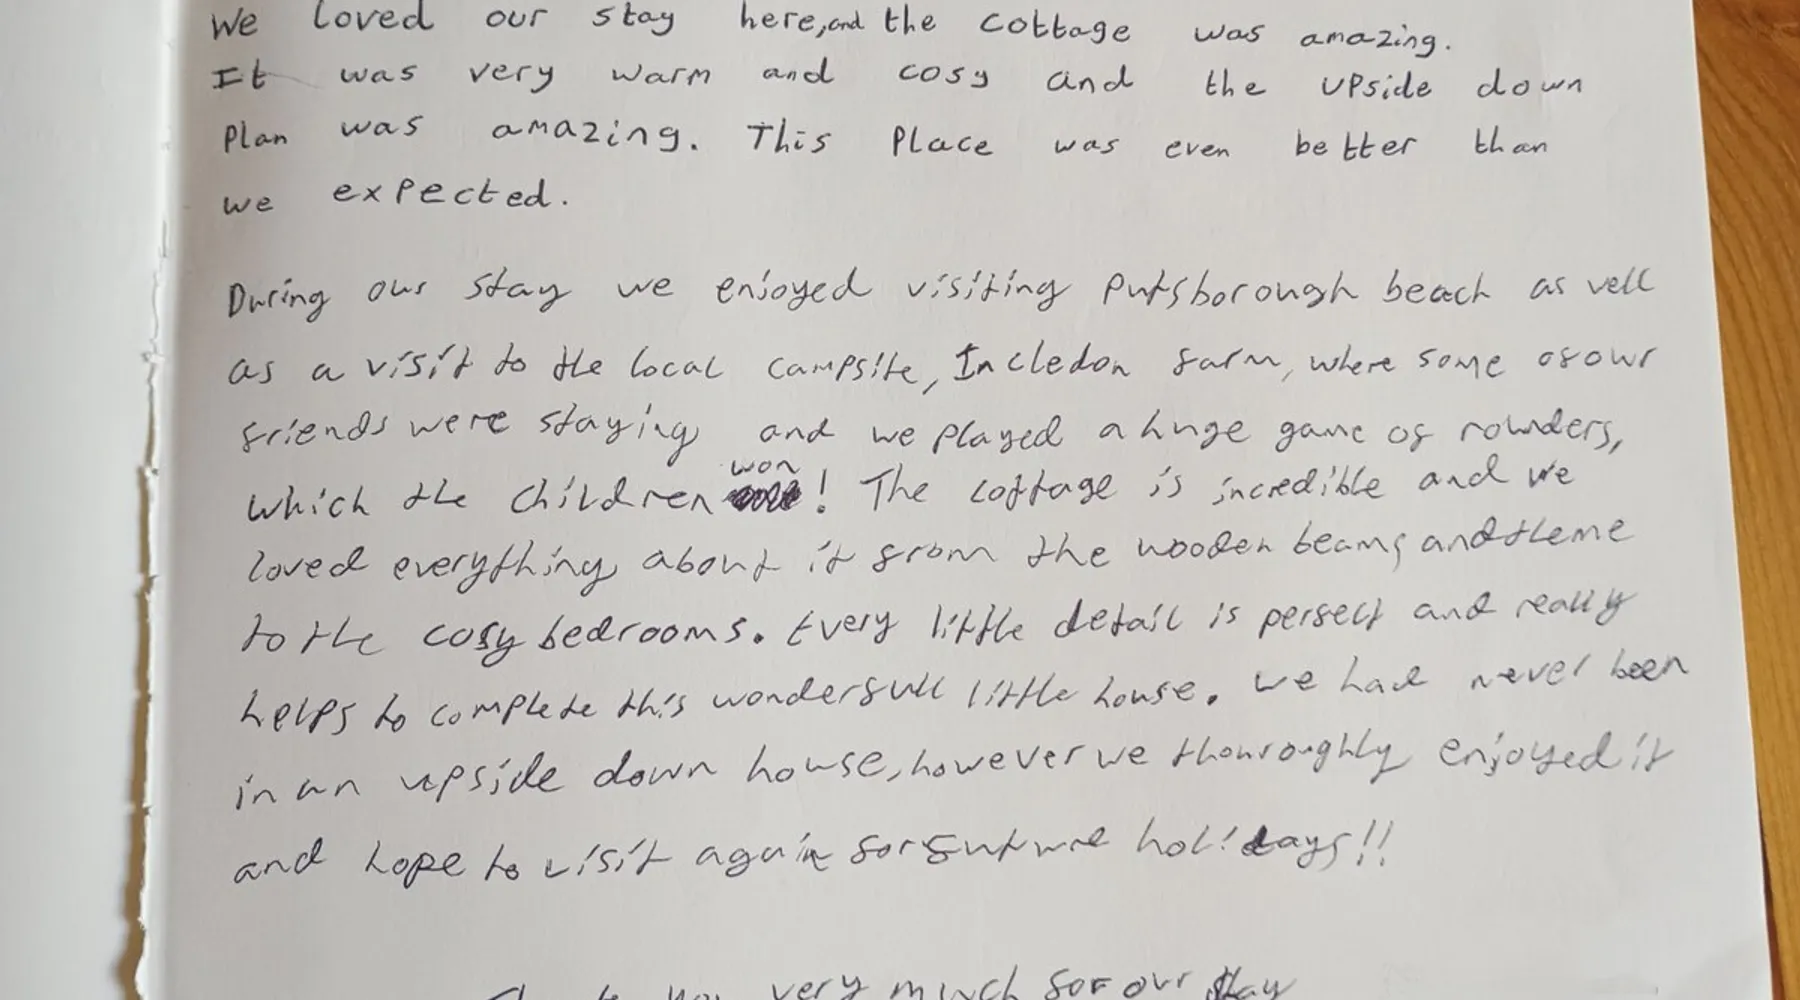 We loved our stay here, and the cottage was amazing.
It was very warm and cosy and the upside down
plan was amazing. This place was even better than
we expected.
During our stay we enjoyed visiting putsborough beach as well
as a visit to the local campsite, Incledon farm, where some of our
friends were staying and we played a huge game of rounders,
which the children won! The cottage is incredible and we
loved everything about it from the wooden beams and theme
to the cosy bedrooms. Every little detail is perfect and really
helps to complete this wonderfull little house. We had never been
in an upside down house, however we thouroughly enjoyed it
and hope to visit again for future holidays!!
Thank you very much for our stay